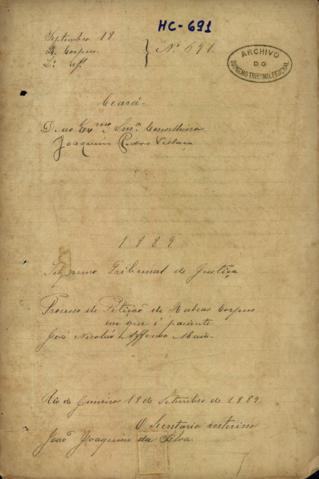 HC-691
Septembro 18
H. Corpus
Nº 691
ARCHIVO
DO
SUPREMO TRIBUNAL FEDERAL
Ceará
D. ao Exmo Snr. Conselheiro
Joaquim Pedro
1889
Supremo Tribunal de Justiça
Processo de Petição de Habeas Corpus
em que é paciente
José Nicolau Affonso Maia.
Rio de Janeiro 18 de Setembro de 1889.
O Secretario interino
João Joaquim da Silva